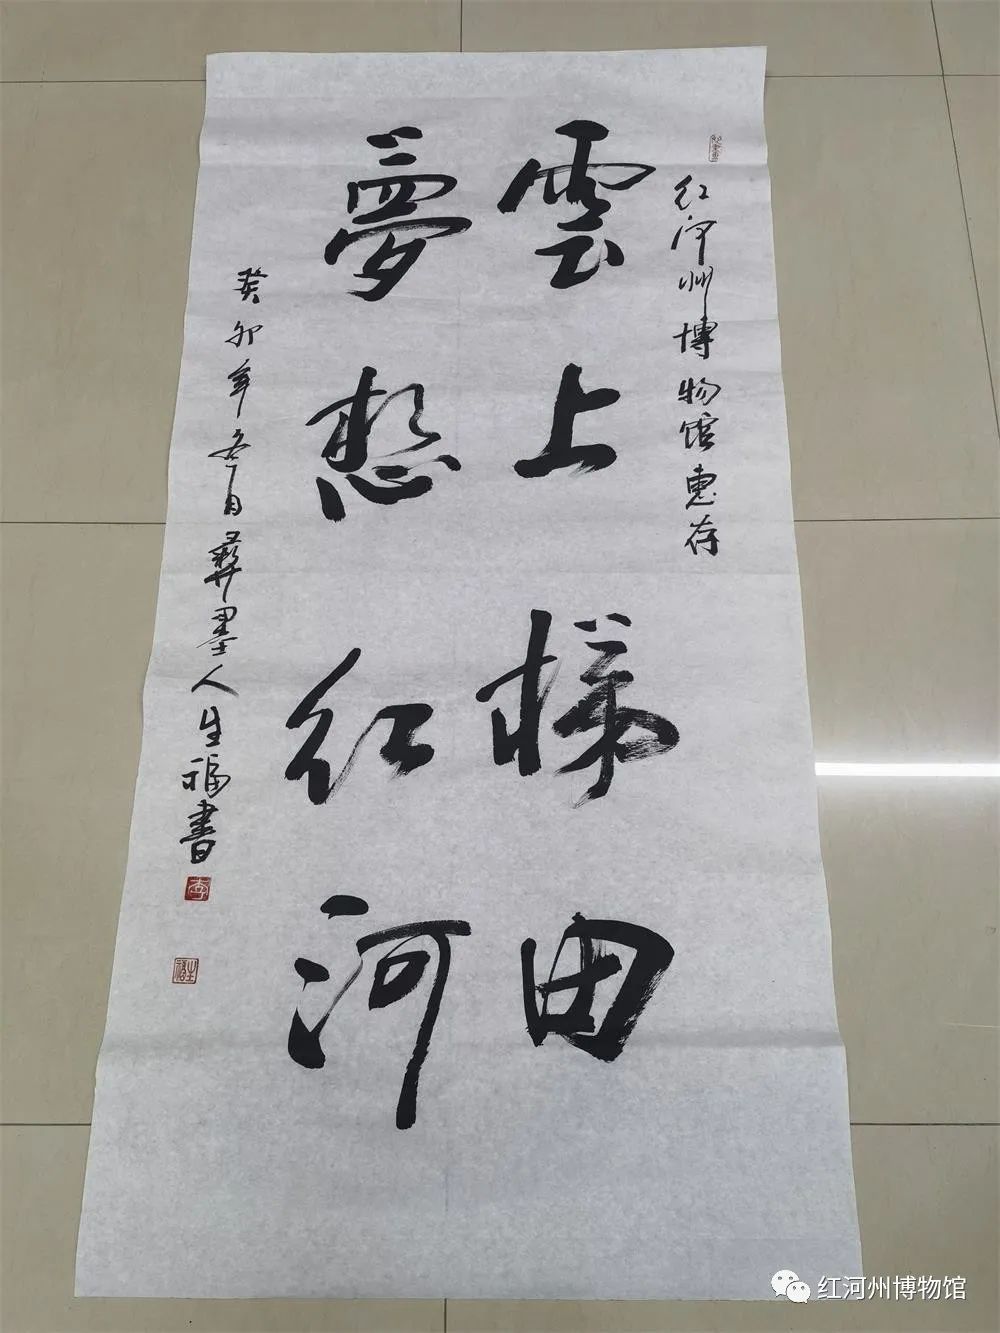 红河州博物馆惠存
雲上梯田
夢想红河
癸卯年冬月彝墨人生福書
李
生福
红河州博物馆